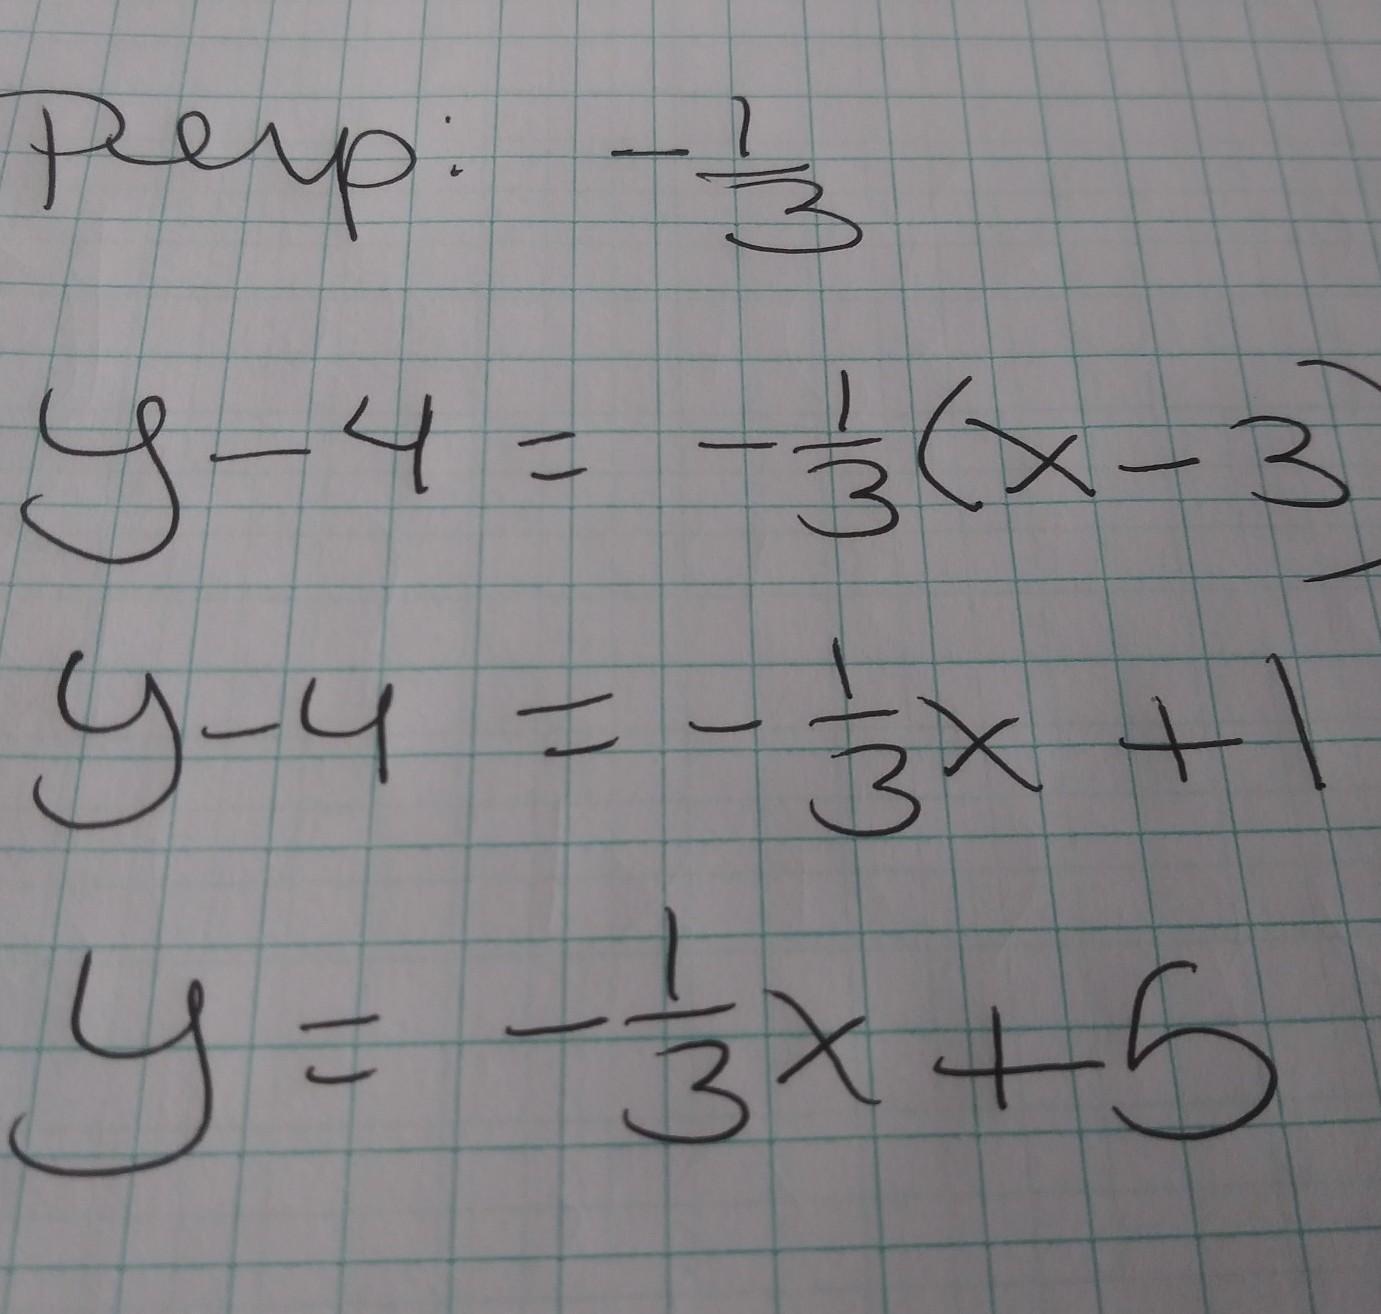 Perp: -1/3
y - 4 = -1/3(x - 3)
y - 4 = -1/3x + 1
y = -1/3x + 5